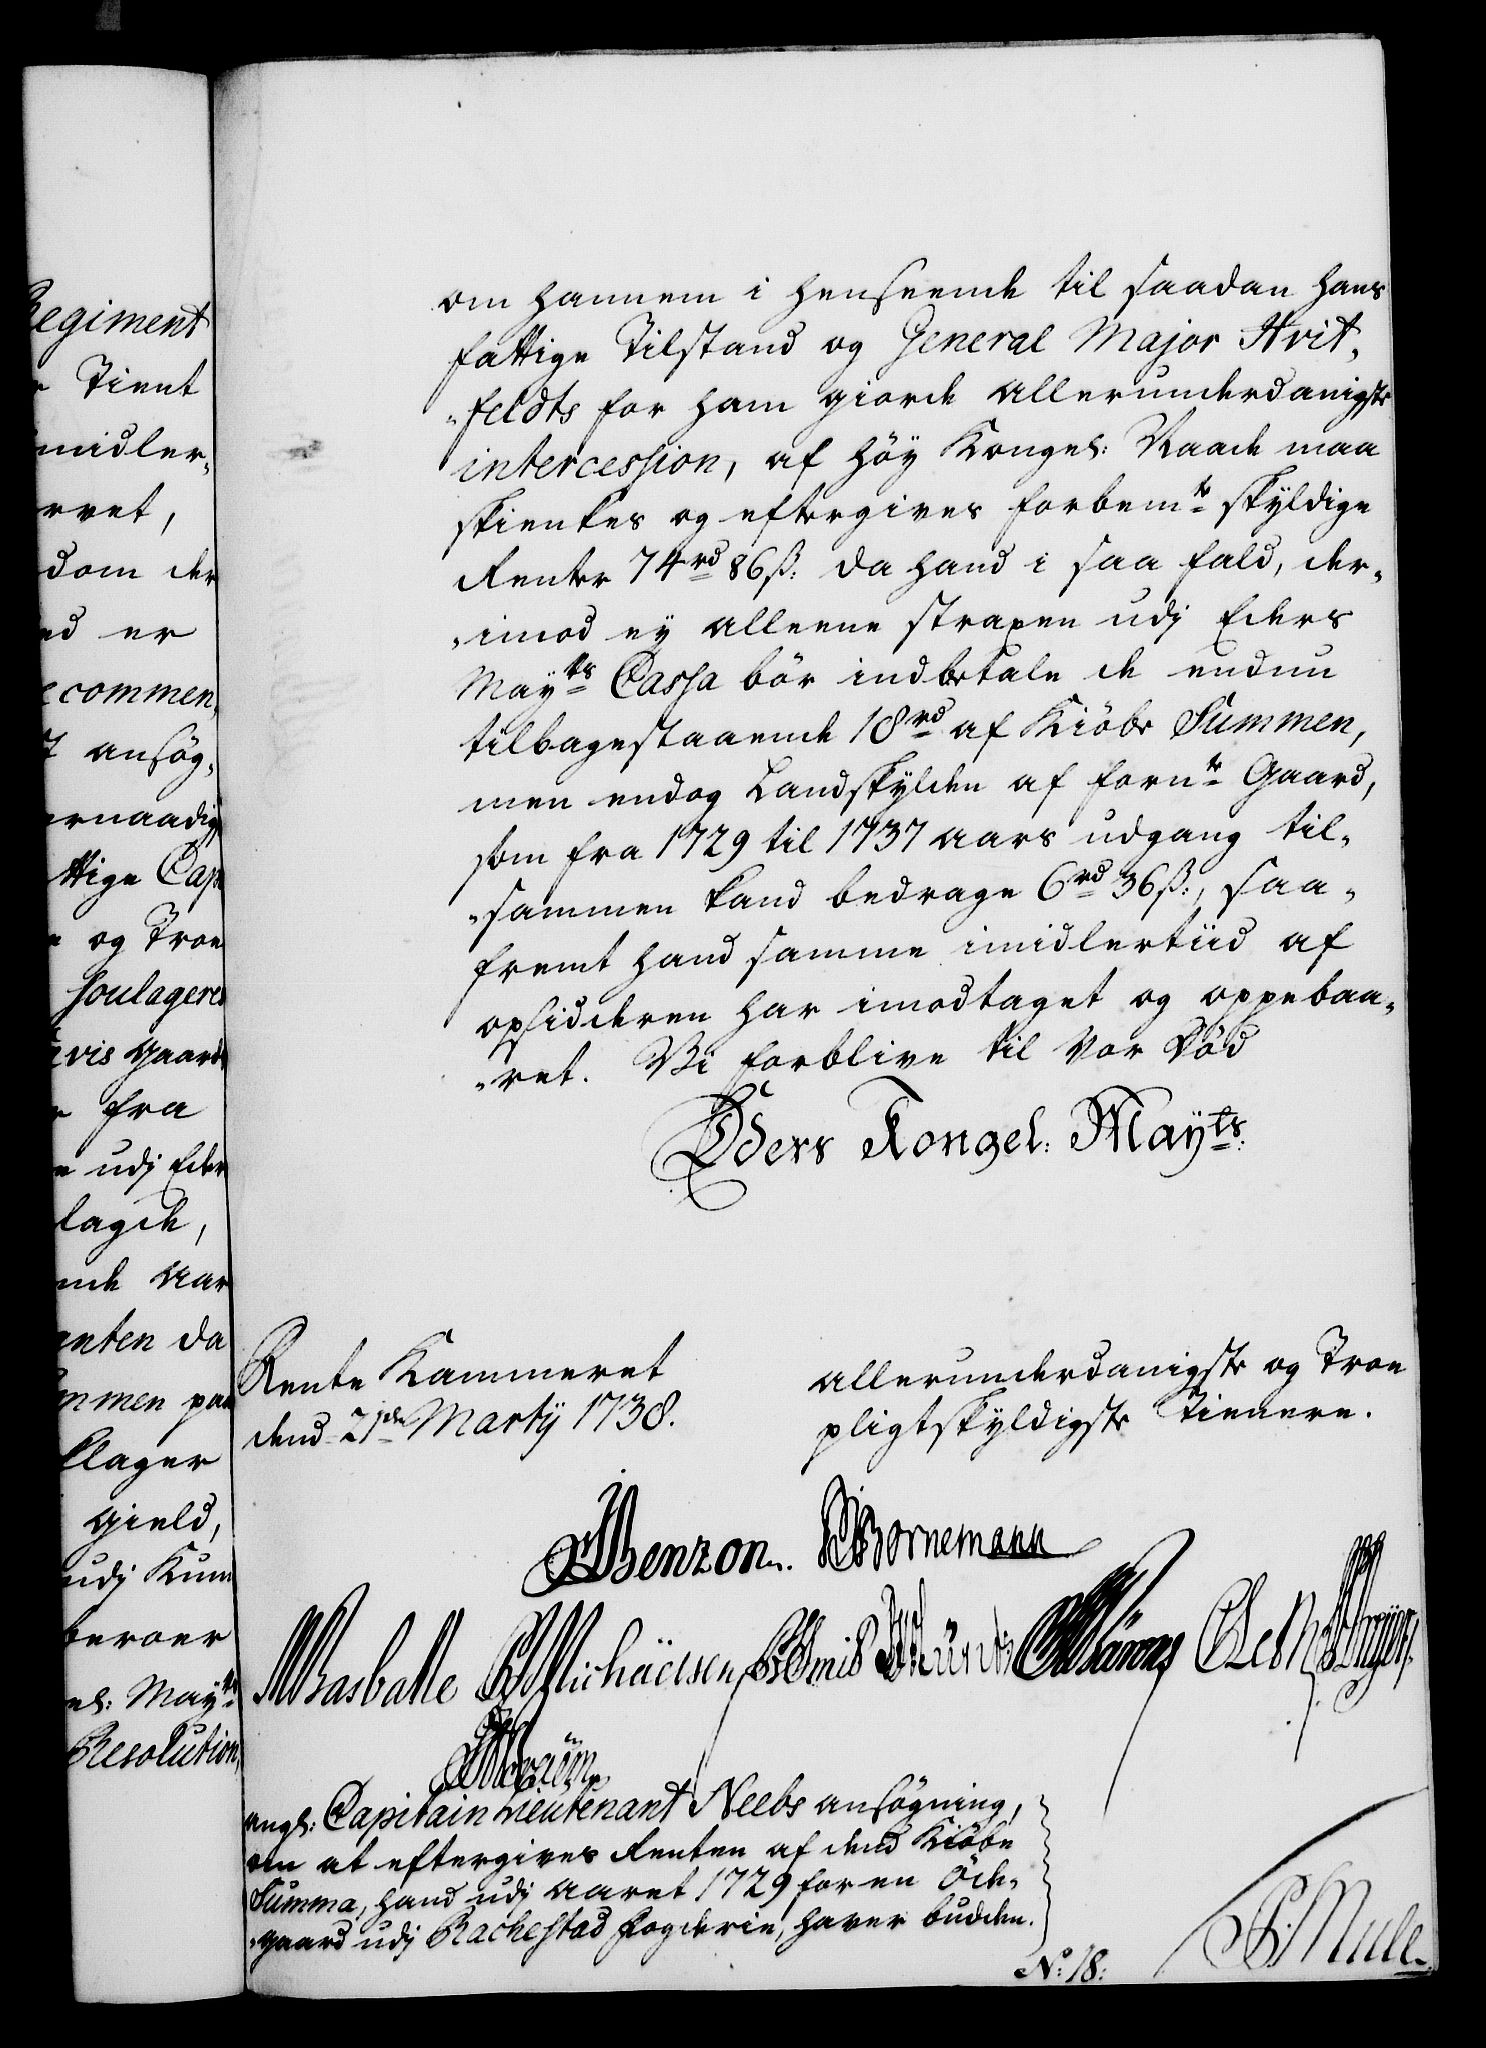 Regiment
Tient
imidler„
rvet,
dom der
ed er
ecommen„
ansøg„
ernaadig
ttige Cap
og Troe
soulagere
vis gaard
fra
udj Eder
lagde,
nde aar
anten da
mmen paa
klager
gield,
udj Kum
beroer
el: Mayts
Resolution,
om hannem i henseende til saadan hans
fattige Tilstand og General Major Hvit„
„feldts for ham giorde allerunderdanigste
intercession, af høy Kongel: Naade maa
skienkes og eftergives forbemte skyldige
Renter 74 rd 86 ß: da hand i saa fald, der„
„imod ey alleene straxen udj Eders
Mayts Cassa bør indbetale de endnu
tilbagestaaende 18 rd af Kiøbe Summen,
men endog Landskylden af fornte Gaard,
som fra 1729 til 1737 aars udgang til„
„sammen kand bedrage 6 rd 36 ß:, saa„
fremt hand samme imidlertiid af
opsidderen har imodtaget og oppebaa„
„ret. Vi forblive til vor Død
Eders Kongel: Mayts:
Rente Kammeret
dend 21de Martij 1738.
allerunderdanigste og Troe
pligtskyldigste Tienere.
Benzon. Bornemann
Basballe Michäelsen
angl: Capitain Lieutenant Neebs ansøgning,
om at eftergives Renten af dend Kiøbe
Summa, hand udj aaret 1729 for en Øde„
„gaard udj Rachestad Fogderie, haver budden.
No: 18:
Mule